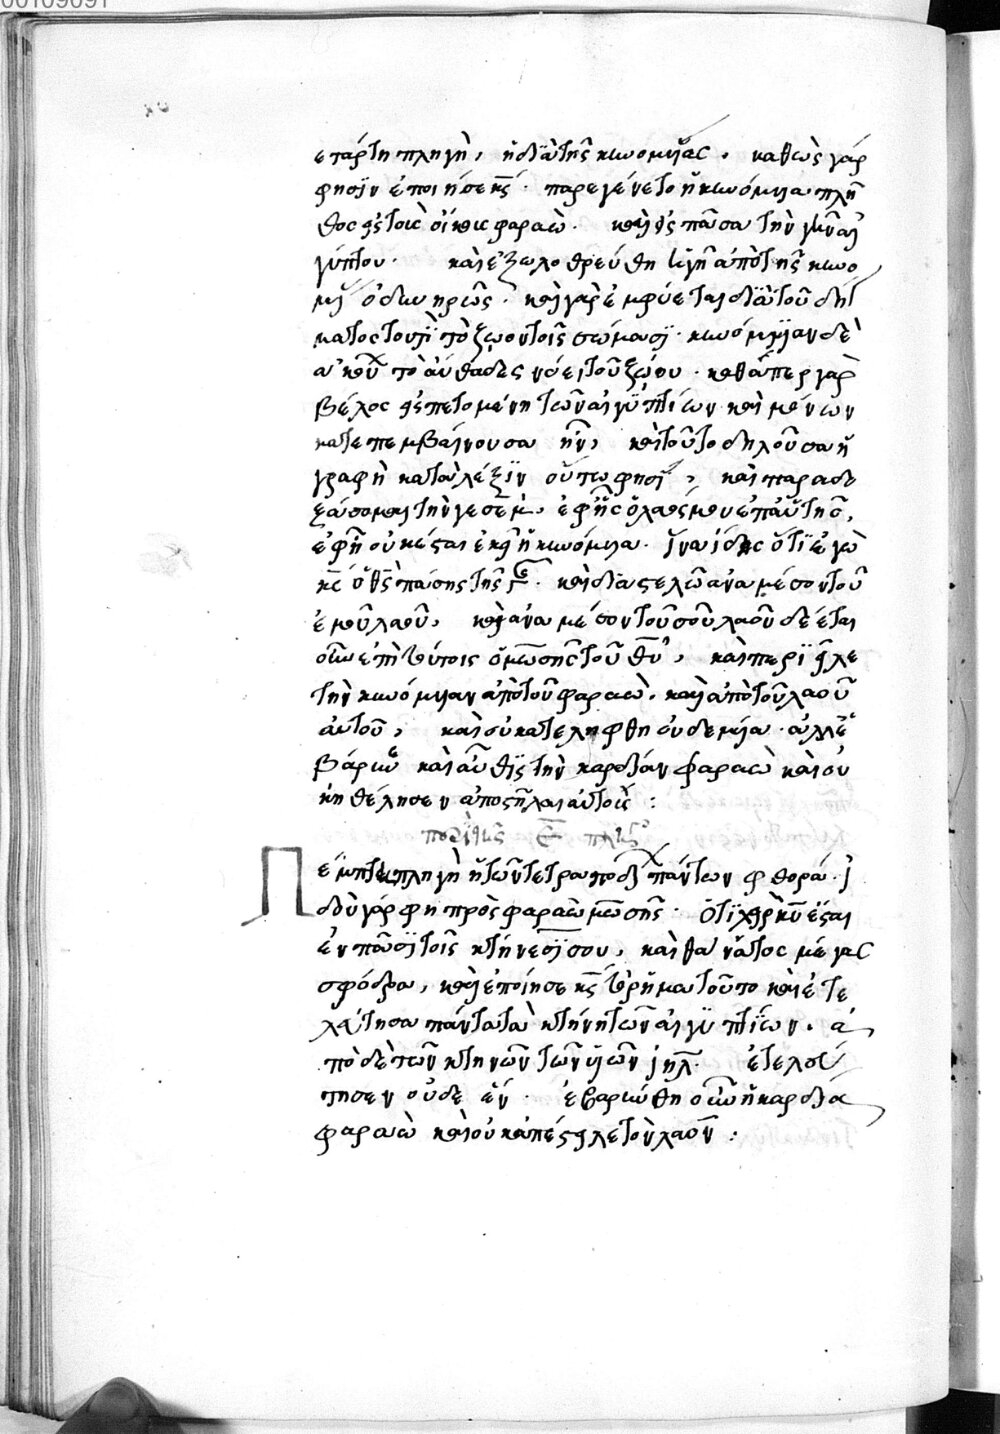 ετάρτη πληγὴ, ἡ διὰ τῆς κυνομυίας. καθὼς γάρ
φησϊν ἐποίησε κ̅ς̅. παρεγένετο ἡ κυνόμυια πλῆ
θος εἰς τοὺς οἴκους φαραὼ. καὶ εἰς πᾶσαν τὴν γῆν αἰ
γύπτου. καὶ ἐξωλοθρεύθη ἡ γῆ ἀπὸ τῆς κυνο
μυί
ματος τοῖς σώμασϊ. κυνόμυιαν δὲ
ἀκούων τὸ αὔθαδες νόει τοῦ ζώου. καθάπερ γὰρ
βέλος ἐπετομένη τῶν αἰγϋπτίων καὶ μένων
κατεπεμβαίνουσα ἦν, καὶ τοῦτο δηλοῦσα ἡ
γραφὴ κατὰ λέξϊν οὕτω φησϊ, καὶ παραδο
ξάσομαι τὴν γεσὲμ, ἐφ' ἧς ὁ λαός μου ἐπ' αὐτῆς,
ἐφ' ἧ οὐκ ἔσται ἐκεῖ ἡ κυνόμυια. ἵνα ἰδῆς ὅτϊ ἐγὼ
κ̅ς̅ ὁ θ̅ς̅ πάσης τῆς γῆς. καὶ διαστελῶ ἀνὰ μέσον τοῦ
ἐμοῦ λαοῦ, καὶ ἀνὰ μέσον τοῦ σοῦ λαοῦ δέεται
μωσῆς τοῦ θ̅υ̅, καὶ περιεῖλε
τὴν κυνόμυιαν ἀπὸ τοῦ φαραὼ. καὶ ἀπὸ τοῦ λαοῦ
αὐτοῦ, καὶ οὐ κατελήφθη οὐδεμία. ἀλλ' ἐ
βάρυνε καὶ αὖθϊς τὴν καρδίαν φαραὼ καὶ οὐ
κ ἠθέλησεν ἀποστῆλαι αὐτοὺς :
Πέμπτη πληγὴ ἡ τῶν τετραπόδων πάντων φθορά. ἰ
δοὺ γάρ φη πρὸς φαραὼ μωσῆς. ὅτϊ χεὶρ κ̅υ̅ ἔσται
ἐν πᾶσϊ τοῖς κτήνεσϊ σου, καὶ θάνατος μέγας
σφόδρα, καὶ ἐποίησε κ̅ς̅ τὸ ρῆμα τοῦτο καὶ ἐτε
λεύτησε πάντα τὰ κτήνη τῶν αἰγϋπτϊων. ἀ
πὸ δὲ τῶν κτηνῶν τῶν υἱῶν ἰηλ. ἐτελεύ
τησεν οὐδὲ ἕν. ἐβαρύνθη οὖν ἡ καρδία
φαραὼ καὶ οὐκ ἀπέστειλε τὸν λαὸν :